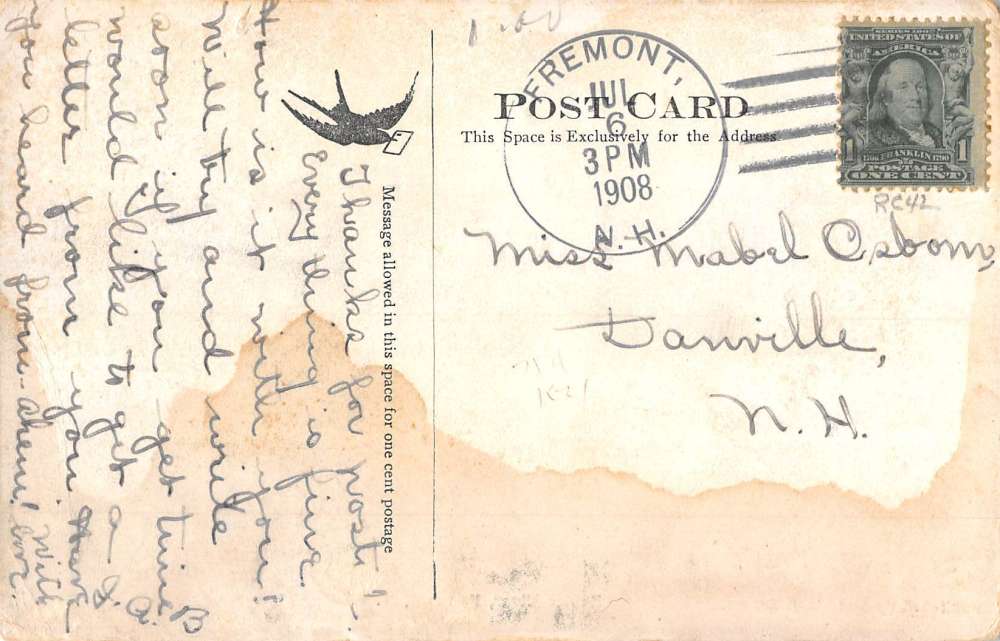 Thanks for post!-
Every thing is fine.
How is it with you?
Will try and write
soon if you get time
would like to get a
letter from you. Have
you heard from - ahem! With
love.
Message allowed in this space for one cent postage
POST CARD
This Space is Exclusively for the Address
FREMONT,
JUL
6
3 PM
1908
N. H.
SERIES 1902
UNITED STATES OF
AMERICA
1706 FRANKLIN 1790
1 POSTAGE 1
ONE CENT
RC42
Miss Mabel Osborn,
Danville,
N. H.